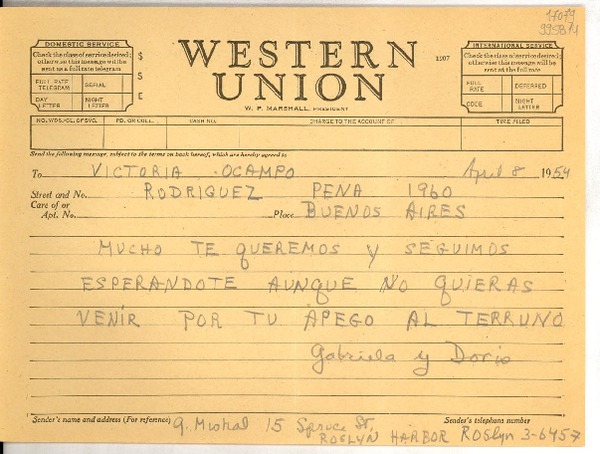 17079
DOMESTIC SERVICE
Check the class of service desired;
otherwise this message will be
sent as a full rate telegram
FULL RATE TELEGRAM
SERIAL
DAY LETTER
NIGHT LETTER
$
S
E
WESTERN
UNION
W. P. MARSHALL, PRESIDENT
1207
INTERNATIONAL SERVICE
Check the class of service desired;
otherwise this message will be
sent at the full rate
FULL RATE
DEFERRED
CODE
NIGHT LETTER
NO. WDS.-CL. OF SVC.
PD. OR COLL.
CASH NO.
CHARGE TO THE ACCOUNT OF
TIME FILED
Send the following message, subject to the terms on back hereof, which are hereby agreed to
To VICTORIA OCAMPO April 8 1954
Street and No. RODRIGUEZ PENA 1960
Care of or
Apt. No. Place BUENOS AIRES
MUCHO TE QUEREMOS Y SEGUIMOS
ESPERANDOTE AUNQUE NO QUIERAS
VENIR POR TU APEGO AL TERRUNO
Gabriela y Doris
Sender's name and address (For reference) Sender's telephone number
G. Mistral 15 Spruce St,
ROSLYN HARBOR ROSlyn 3-6457